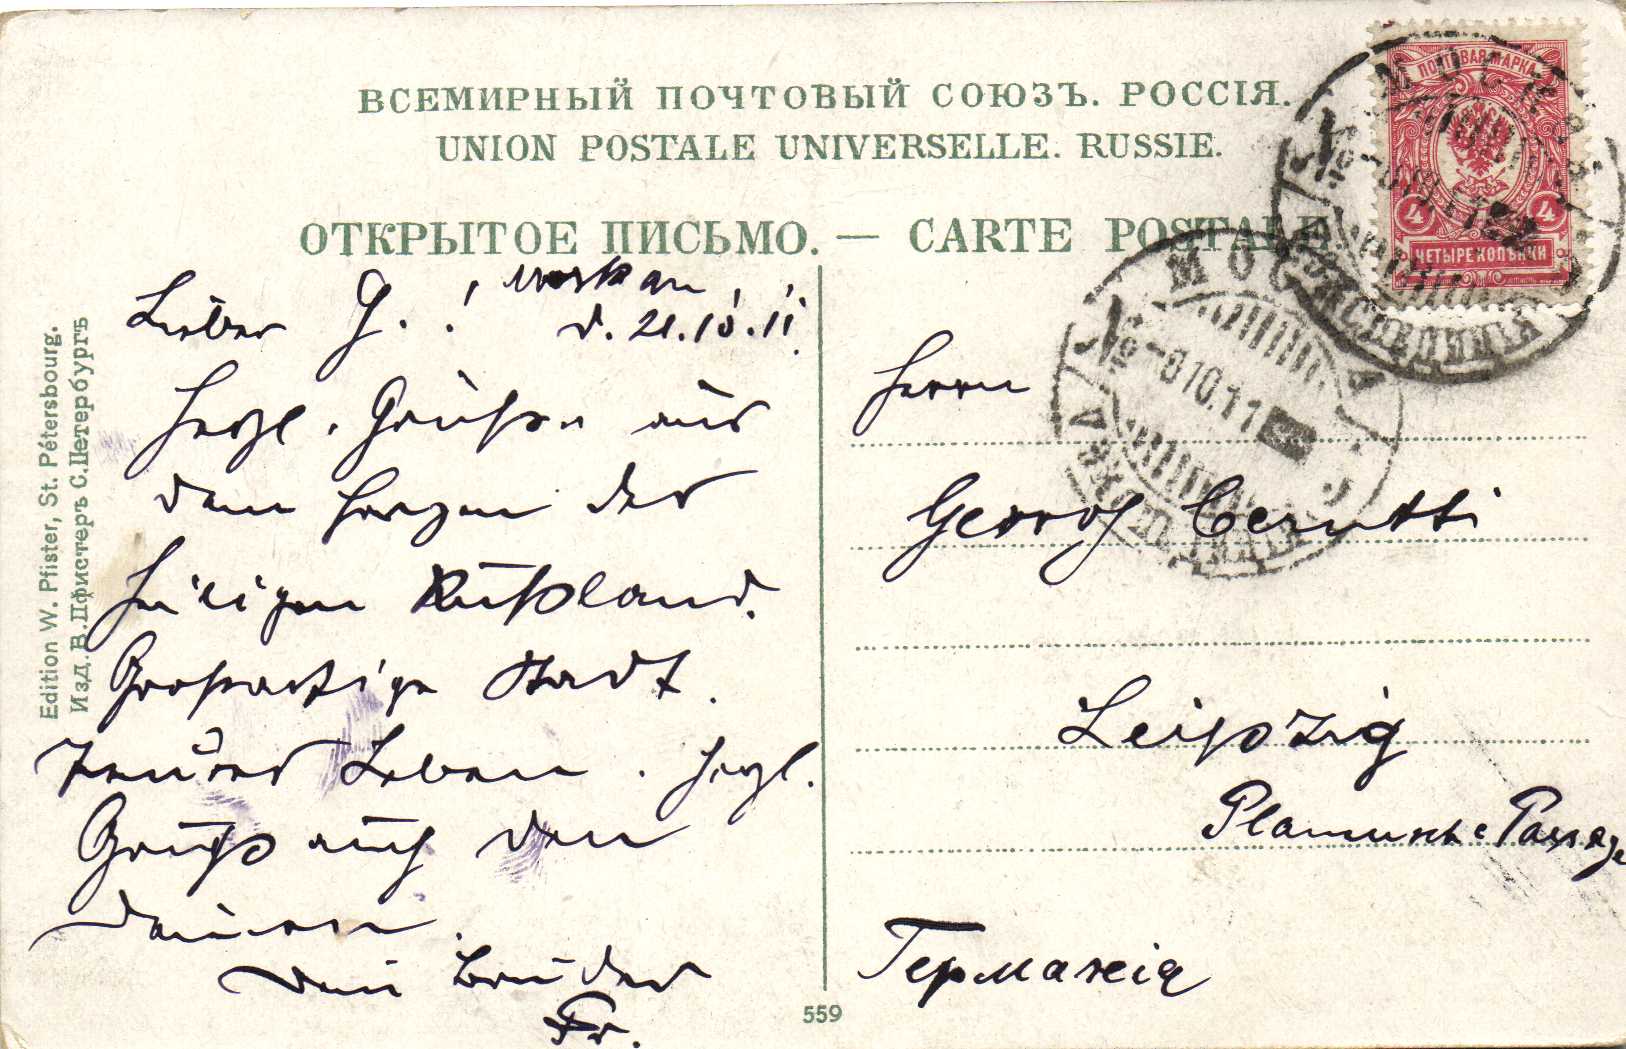 ВСЕМИРНЫЙ ПОЧТОВЫЙ СОЮЗЪ. РОССІЯ.
UNION POSTALE UNIVERSELLE. RUSSIE.
ОТКРЫТОЕ ПИСЬМО. — CARTE POSTALE.
ПОЧТОВАЯ МАРКА
4 4
ЧЕТЫРЕ КОПѢЙКИ
МОСКВА
10.11
Edition W. Pfister, St. Pétersbourg.
Изд. В. Пфистеръ С.Петербургъ
Moskau,
Lieber G.! d. 21.10.11.
Herzl. Grüße aus
dem Herzen des
heiligen Rußland.
Großartige Stadt.
Teures Leben. Herzl.
Gruß auch den
Deinen.
Dein Bruder
Fr.
Herrn
Georg Cerutti
Leipzig
Passage
Германія
559